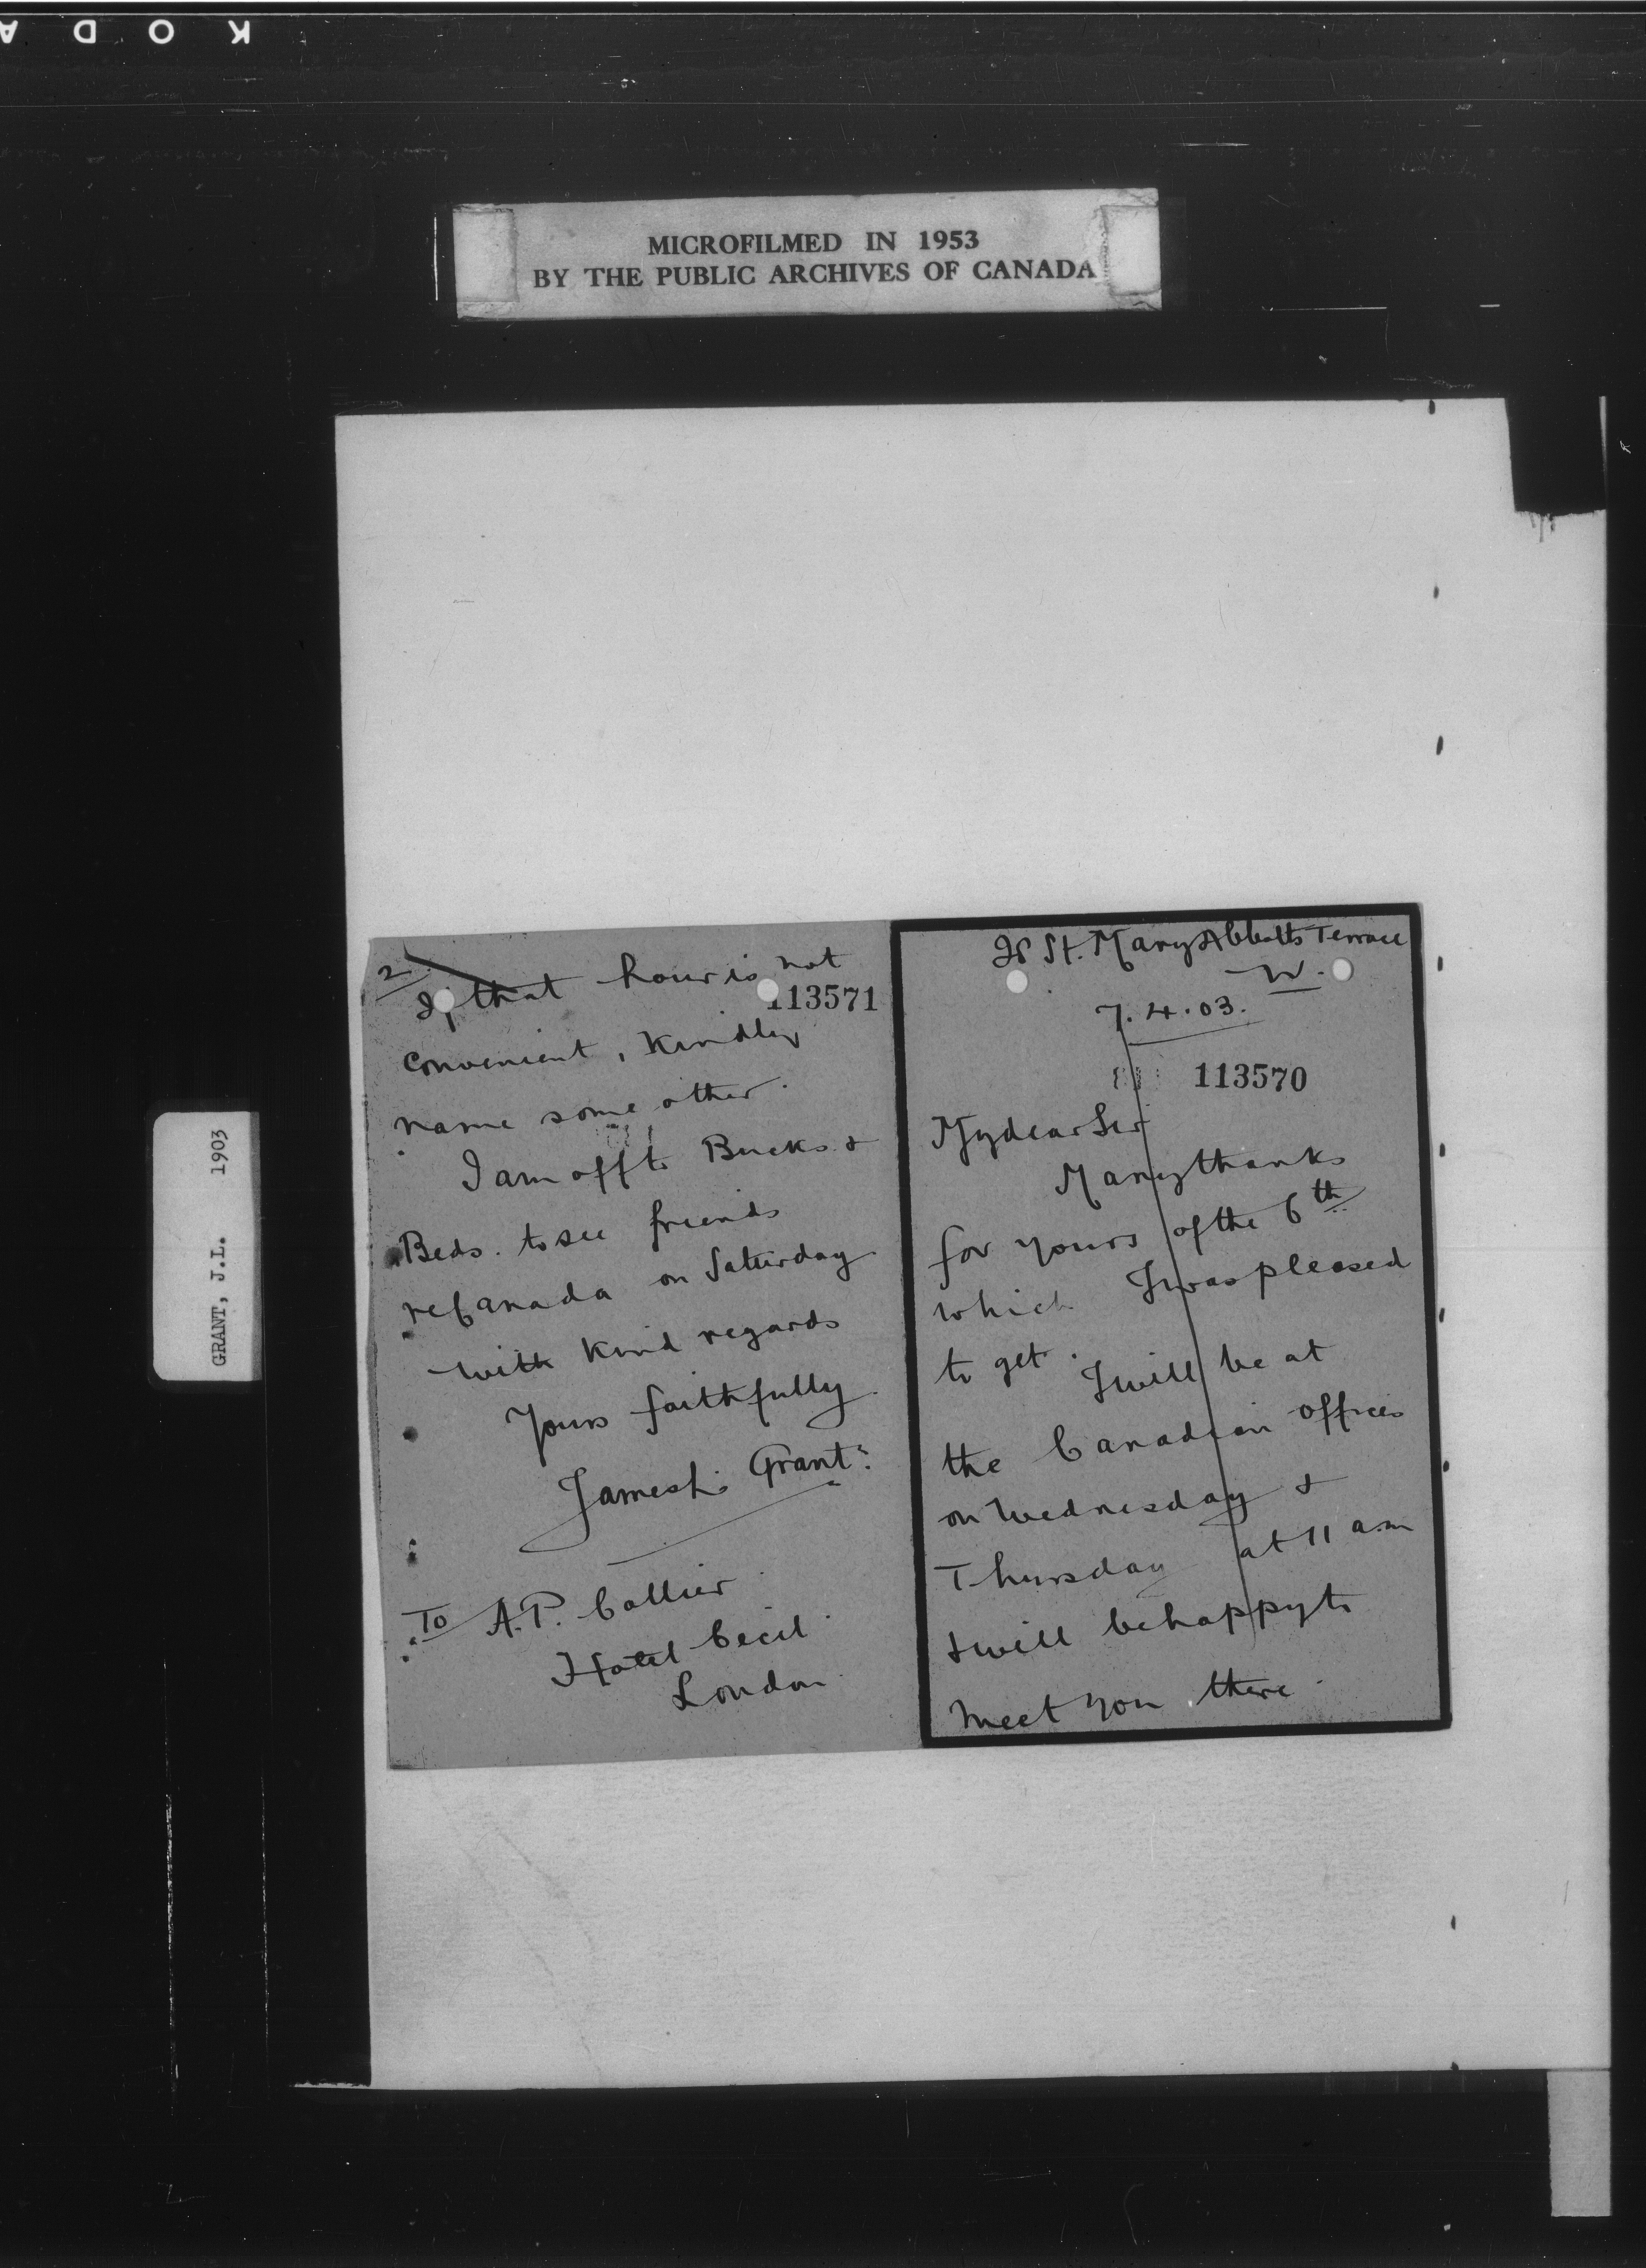 KODA
MICROFILMED IN 1953
BY THE PUBLIC ARCHIVES OF CANADA
GRANT, J.L. 1903
28 St. Mary Abbotts Terrace
W.
7.4.03.
113570
My dear Sir
Many thanks
for yours of the 6th
which I was pleased
to get. I will be at
the Canadian offices
on Wednesday &
Thursday at 11 a.m
& will be happy to
meet you there.
2
113571
If that hour is not
convenient, kindly
name some other.
I am off to Bucks &
Beds. to see friends
re Canada on Saturday
with kind regards
Yours faithfully
James L. Grant.
To A.P. Collier
Hotel Cecil
London